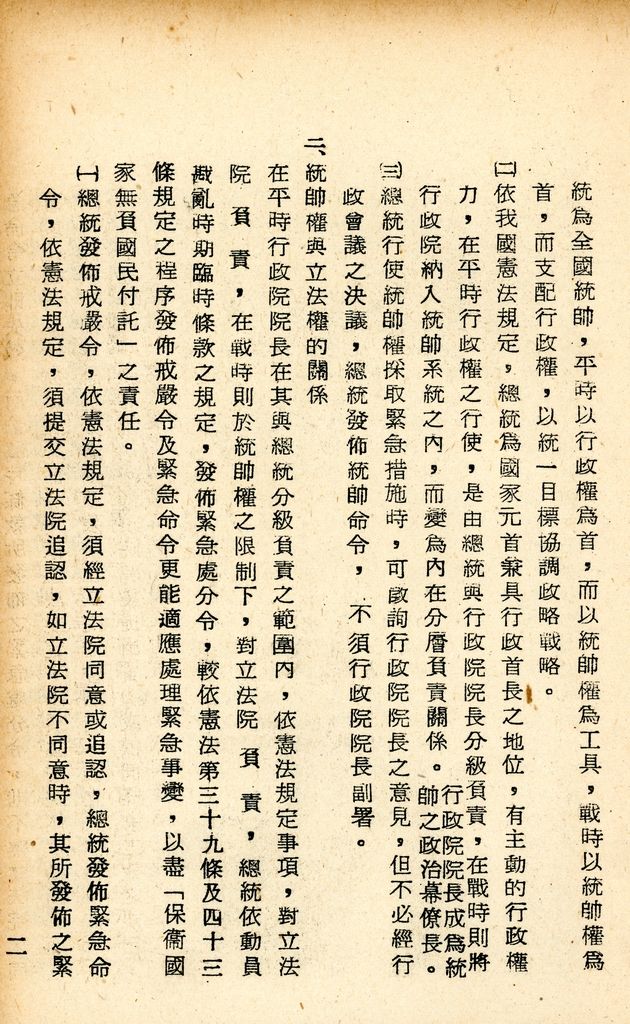 統為全國統帥，平時以行政權為首，而以統帥權為工具，戰時以統帥權為
首，而支配行政權，以統一目標協調政略戰略。
㈡依我國憲法規定，總統為國家元首兼具行政首長之地位，有主動的行政權
力，在平時行政權之行使，是由總統與行政院院長分級負責，在戰時則將
行政院納入統帥系統之內，而變為內在分層負責關係。行政院院長成為統
帥之政治幕僚長。
㈢總統行使統帥權採取緊急措施時，可諮詢行政院院長之意見，但不必經行
政會議之決議，總統發佈統帥命令，不須行政院院長副署。
二、統帥權與立法權的關係
在平時行政院院長在其與總統分級負責之範圍內，依憲法規定事項，對立法
院負責，在戰時則於統帥權之限制下，對立法院負責，總統依動員
戡亂時期臨時條款之規定，發佈緊急處分令，較依憲法第三十九條及四十三
條規定之程序發佈戒嚴令及緊急命令更能適應處理緊急事變，以盡「保衞國
家無負國民付託」之責任。
㈠總統發佈戒嚴令，依憲法規定，須經立法院同意或追認，總統發佈緊急命
令，依憲法規定，須提交立法院追認，如立法院不同意時，其所發佈之緊
二